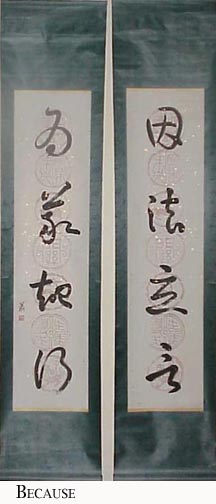 因法立言
為義起行
BECAUSE